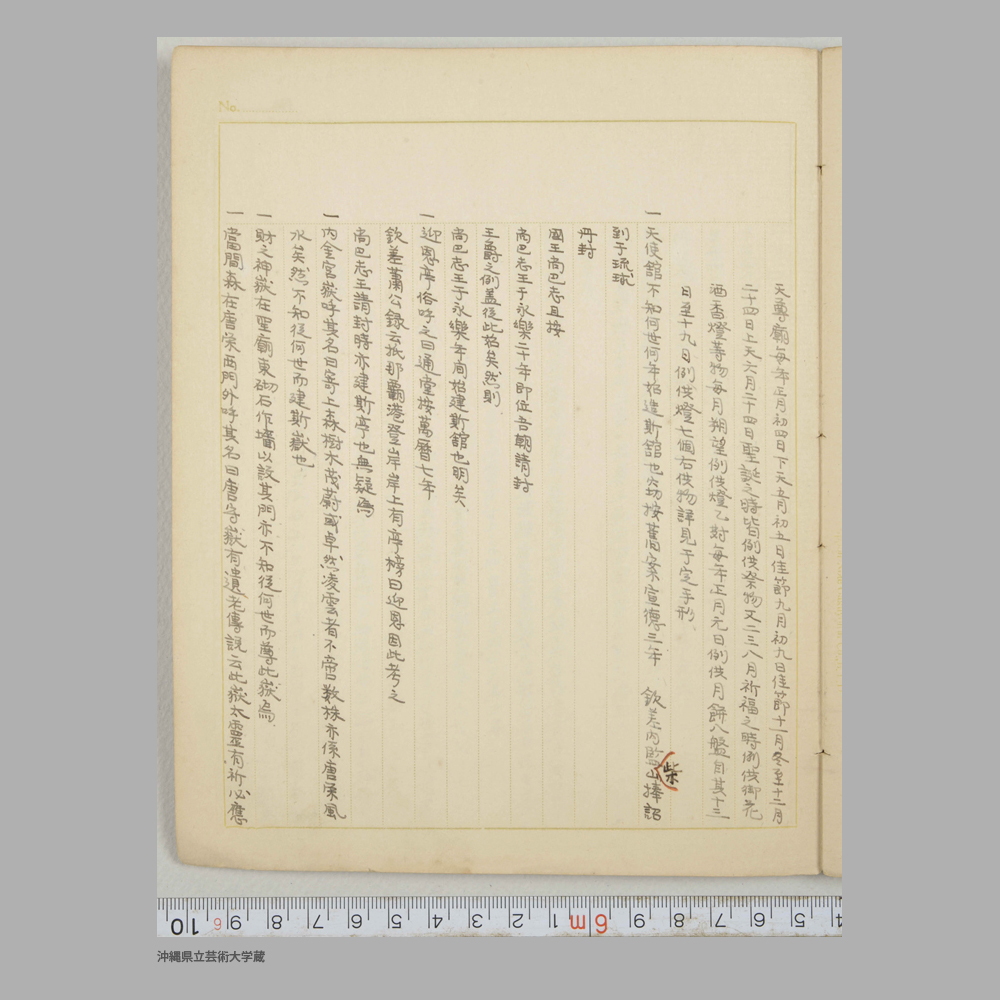 天尊廟每年正月初四日下天五月初五日佳節九月初九日佳節十一月冬至十二月
二十四日上天六月二十四日聖誕之時皆例供祭物又二三八月祈福之時例供御花
酒香燈等物每月朔望例供燈乙對每年正月元日例供月餅八盤自其十三
日至十九日例供燈七個右供物詳見于定手形
一 天使館不知何世何年始造斯館也窃按舊案宣德三年 欽差內監山捧詔
柴
到于琉球
丹封
國王尚巴志且按
尚巴志王于永樂二十年即位吾朝請封
王爵之例蓋從此始矣然則
尚巴志王于永樂年間始建斯館也明矣
一 迎恩亭俗呼之曰通堂按萬曆七年
欽差蕭公錄云抵那霸港登岸岸上有亭榜曰迎恩因此考之
尚巴志王請封時亦建斯亭也無疑焉
一 內金宮嶽呼其名曰寄上森樹木茂蔚或卓然凌雲者不啻數株亦係唐榮風
水矣然不知從何世而建斯嶽也
一 財之神嶽在聖廟東砌石作墻以設其門亦不知從何世而尊此嶽焉
一 當間森在唐榮西門外呼其名曰唐守嶽有遺老傳說云此嶽太靈有祈必應
No.
10 6 9 8 7 6 5 4 3 2 1 6m 9 8 7 6 5 4
沖縄県立芸術大学蔵